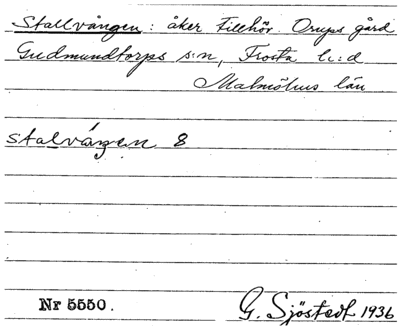 Stallvången: åker tillhör Orups gård
Gudmundtorps s:n, Frosta h:d
Malmöhus län
stalváŋen 8
Nr 5550. G. Sjöstedt 1936